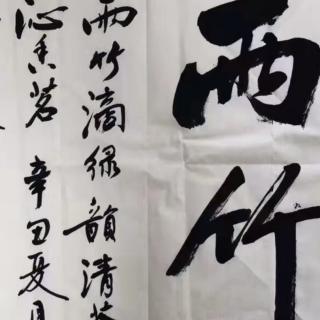 雨竹
雨竹滴绿韻清
沁香茗 辛丑夏月